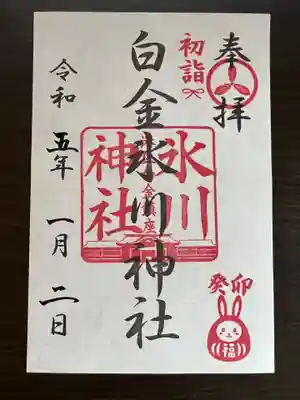 奉拝
初詣
白金氷川神社
氷川
神社
令和五年一月二日
癸卯
福